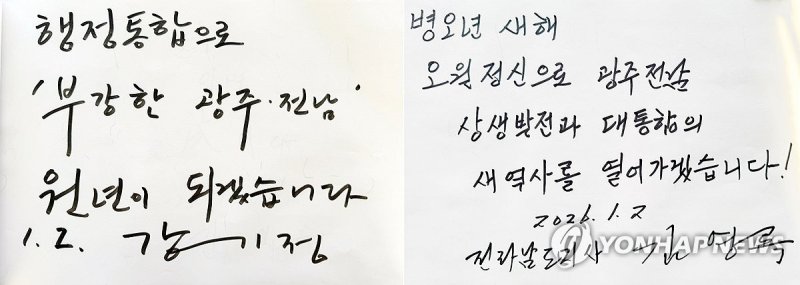 행정통합으로
'부강한 광주·전남'
원년이 되겠습니다
1. 2. 강기정
병오년 새해
오월정신으로 광주전남
상생발전과 대통합의
새역사를 열어가겠습니다!
2026. 1. 2
전라남도지사 김영록
YONHAPNEWS